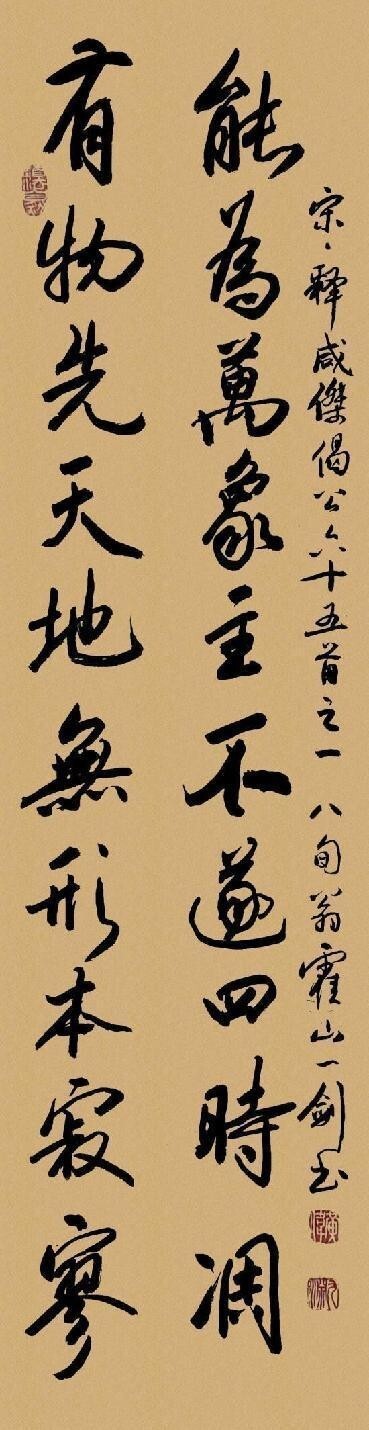 有物先天地無形本寂寥
能為萬象主不遂四時凋
宋、釋咸傑偈公六十五首之一 八旬翁霍山一劍书